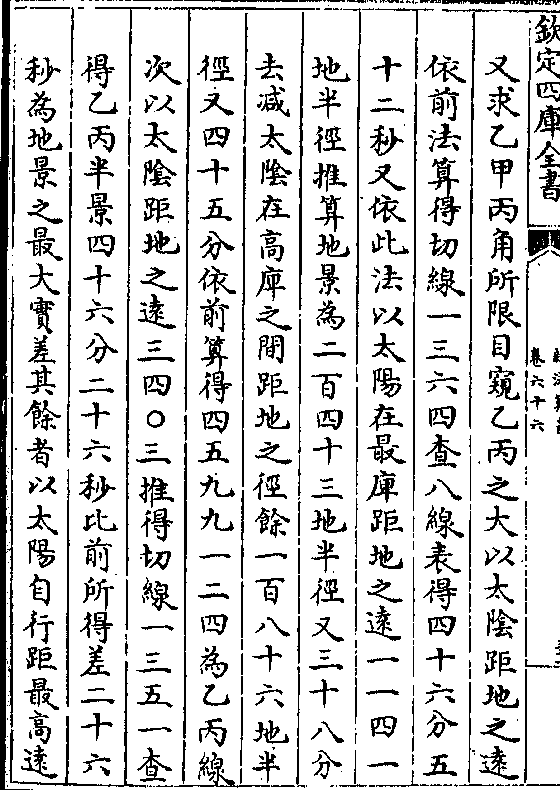 欽定四庫全書
卷六十六
又求乙甲丙角所限目窺乙丙之大以太陰距地之遠
依前法算得切線一三六四查八線表得四十六分五
十二秒又依此法以太陽在最庳距地之遠一一四一
地半徑推算地景為二百四十三地半徑又三十八分
去減太陰在高庳之間距地之徑餘一百八十六地半
徑又四十五分依前算得四五九九一二四為乙丙線
次以太陰距地之遠三四〇三推得切線一三五一查
得乙丙半景四十六分二十六秒比前所得差二十六
秒為地景之最大實差其餘者以太陽自行距最高遠